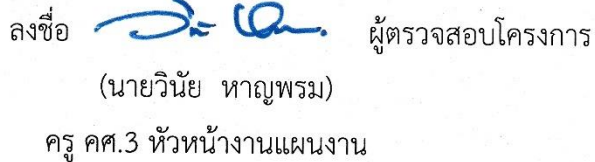 ลงชื่อ ผู้ตรวจสอบโครงการ
(นายวินัย หาญพรม)
ครู คศ.3 หัวหน้างานแผนงาน